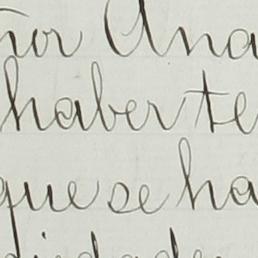 Ana
haberte
que se ha